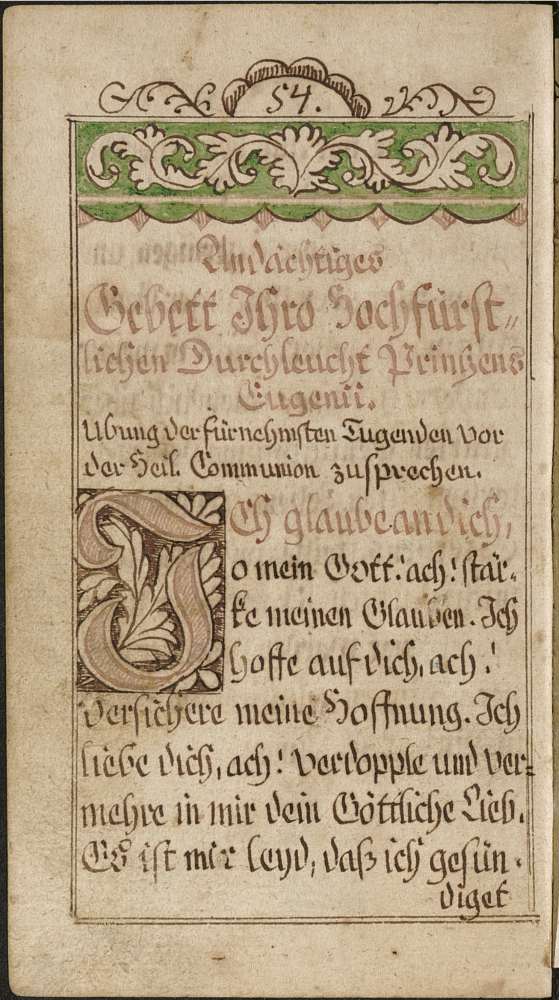 54.
Andächtiges
Gebett Ihro Hochfürst„
lichen Durchleucht Printzens
Eugenii.
Ubung der fürnehmsten Tugenden vor
der Heil. Communion zusprechen.
ICh glaube an dich,
o mein Gott! ach! stär„
ke meinen Glauben. Ich
hoffe auf dich, ach!
versichere meine Hoffnung. Ich
liebe dich, ach! verdopple und ver„
mehre in mir dein Göttliche Lieb.
Es ist mir leyd, daß ich gesün„
diget